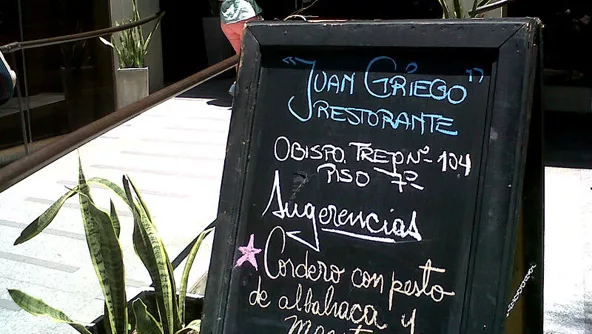 "JUAN GRIEGO"
RESTORANTE
OBISPO TREJO Nº 104
PISO 7º
Sugerencias
Cordero con pesto
de albahaca y
menta